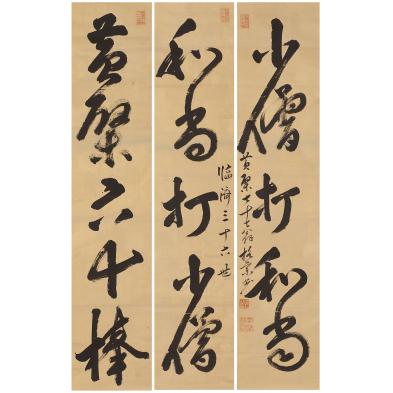 少僧打和尚
黄檗七十七翁格宗書
臨濟三十六世
和尚打少僧
黄檗六十棒